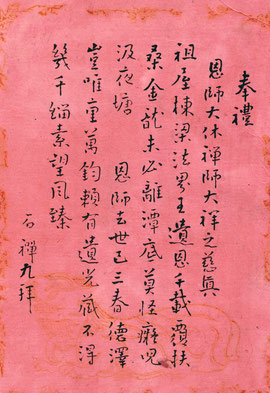 奉禮
恩師大休禪師大祥之慈眞
祖屋棟梁法界王遺恩千載覆扶
桑金龍未必離潭底莫怪癡兒
汲夜塘 恩師去世已三春德澤
豈唯重萬鈞賴有遺光藏不得
幾千緇素望風臻
石禪九拜